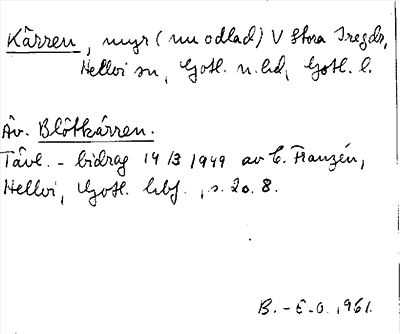 Kärren, myr (nu odlad) V Stora Iregdr,
Hellvi sn, Gotl. n. hd, Gotl. l.
Äv. Blôtkärren.
Tävl.-bidrag 14/3 1949 av C. Franzén,
Hellvi, Gotl. hbf., s. 20. 8.
B.-E.O. 1961.